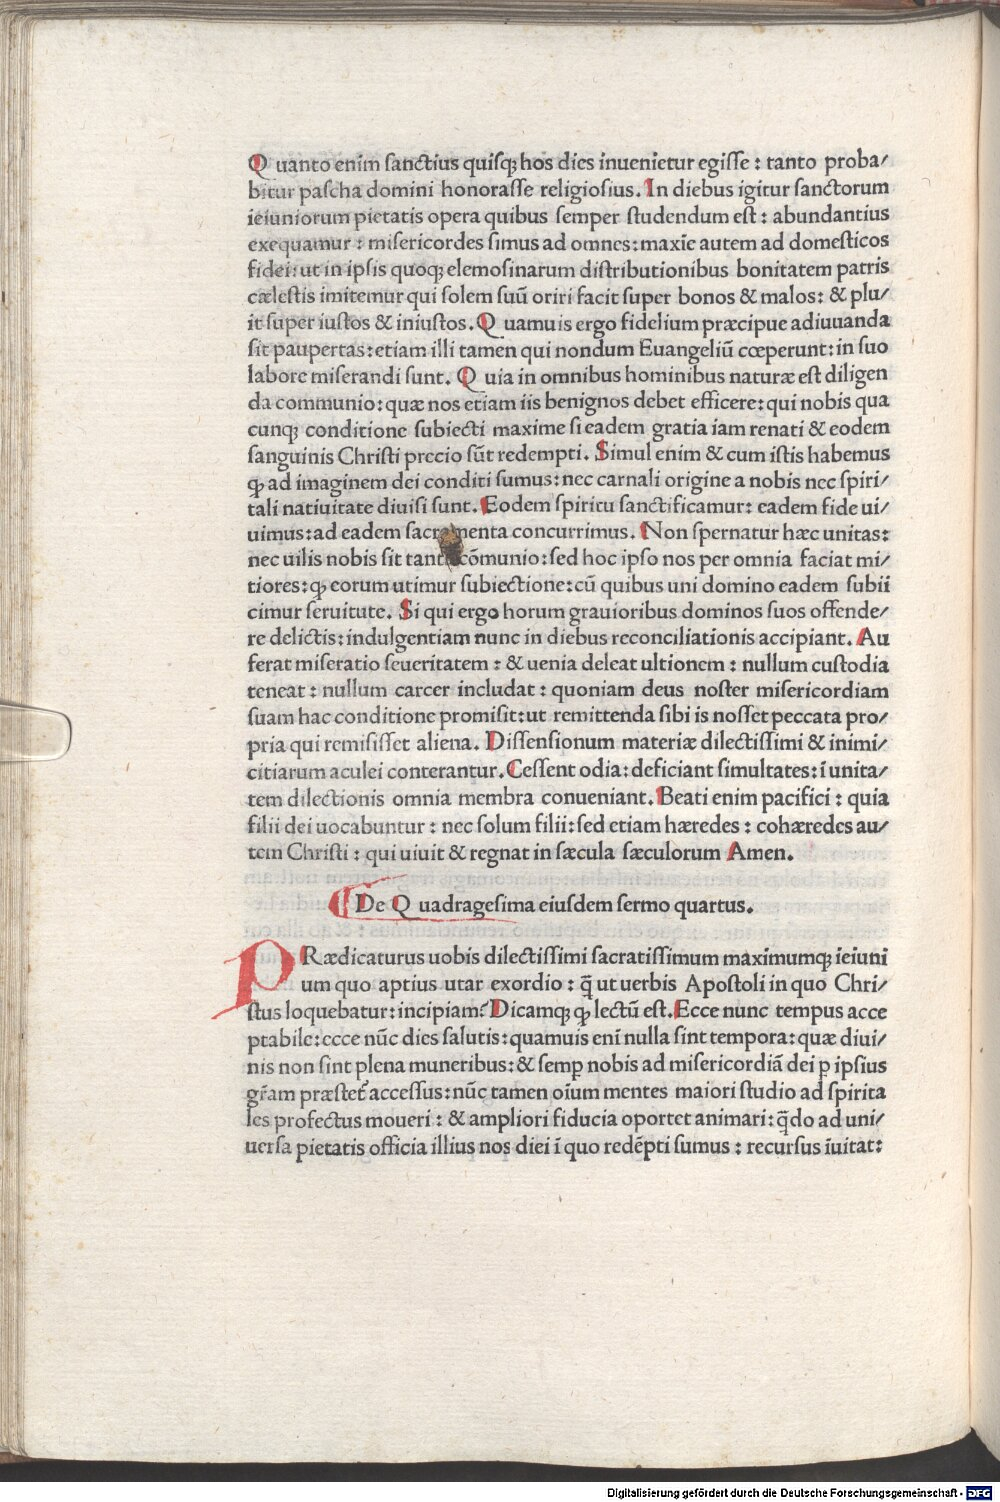 Quanto enim sanctius quisqꝫ hos dies inuenietur egisse : tanto proba/
bitur pascha domini honorasse religiosius. In diebus igitur sanctorum
ieiuniorum pietatis opera quibus semper studendum est : abundantius
exequamur : misericordes simus ad omnes: maxīe autem ad domesticos
fidei: ut in ipsis quoqꝫ elemosinarum distributionibus bonitatem patris
cælestis imitemur qui solem suū oriri facit super bonos & malos: & plu/
it super iustos & iniustos. Quamuis ergo fidelium præcipue adiuuanda
sit paupertas: etiam illi tamen qui nondum Euangeliū cœperunt: in suo
labore miserandi sunt. Quia in omnibus hominibus naturæ est diligen
da communio: quæ nos etiam iis benignos debet efficere: qui nobis qua
cunqꝫ conditione subiecti maxime si eadem gratia iam renati & eodem
sanguinis Christi precio sūt redempti. Simul enim & cum istis habemus
ꝙ ad imaginem dei conditi sumus: nec carnali origine a nobis nec spiri/
tali natiuitate diuisi sunt. Eodem spiritu sanctificamur: eadem fide ui/
uimus: ad eadem sacramenta concurrimus. Non spernatur hæc unitas:
nec uilis nobis sit tanta cōmunio: sed hoc ipso nos per omnia faciat mi/
tiores: ꝙ eorum utimur subiectione: cū quibus uni domino eadem subii
cimur seruitute. Si qui ergo horum grauioribus dominos suos offende/
re delictis: indulgentiam nunc in diebus reconciliationis accipiant. Au
ferat miseratio seueritatem : & uenia deleat ultionem : nullum custodia
teneat : nullum carcer includat : quoniam deus noster misericordiam
suam hac conditione promisit: ut remittenda sibi is nosset peccata pro/
pria qui remisisset aliena. Dissensionum materiæ dilectissimi & inimi/
citiarum aculei conterantur. Cessent odia: deficiant simultates: ī unita/
tem dilectionis omnia membra conueniant. Beati enim pacifici : quia
filii dei uocabuntur : nec solum filii: sed etiam hæredes : cohæredes au/
tem Christi : qui uiuit & regnat in sæcula sæculorum Amen.
De Quadragesima eiusdem sermo quartus.
PRædicaturus uobis dilectissimi sacratissimum maximumqꝫ ieiuni
um quo aptius utar exordio : q̄ ut uerbis Apostoli in quo Chri/
stus loquebatur: incipiam? Dicamqꝫ ꝙ lectū est. Ecce nunc tempus acce
ptabile: ecce nūc dies salutis: quamuis enī nulla sint tempora: quæ diui/
nis non sint plena muneribus: & semꝑ nobis ad misericordiā dei ꝑ ipsius
gr̄am præstet᷑ accessus: nūc tamen oīum mentes maiori studio ad spirita
les profectus moueri : & ampliori fiducia oportet animari: q̄do ad uni/
uersa pietatis officia illius nos diei ī quo redēpti sumus : recursus īuitat:
Digitalisierung gefördert durch die Deutsche Forschungsgemeinschaft - DFG